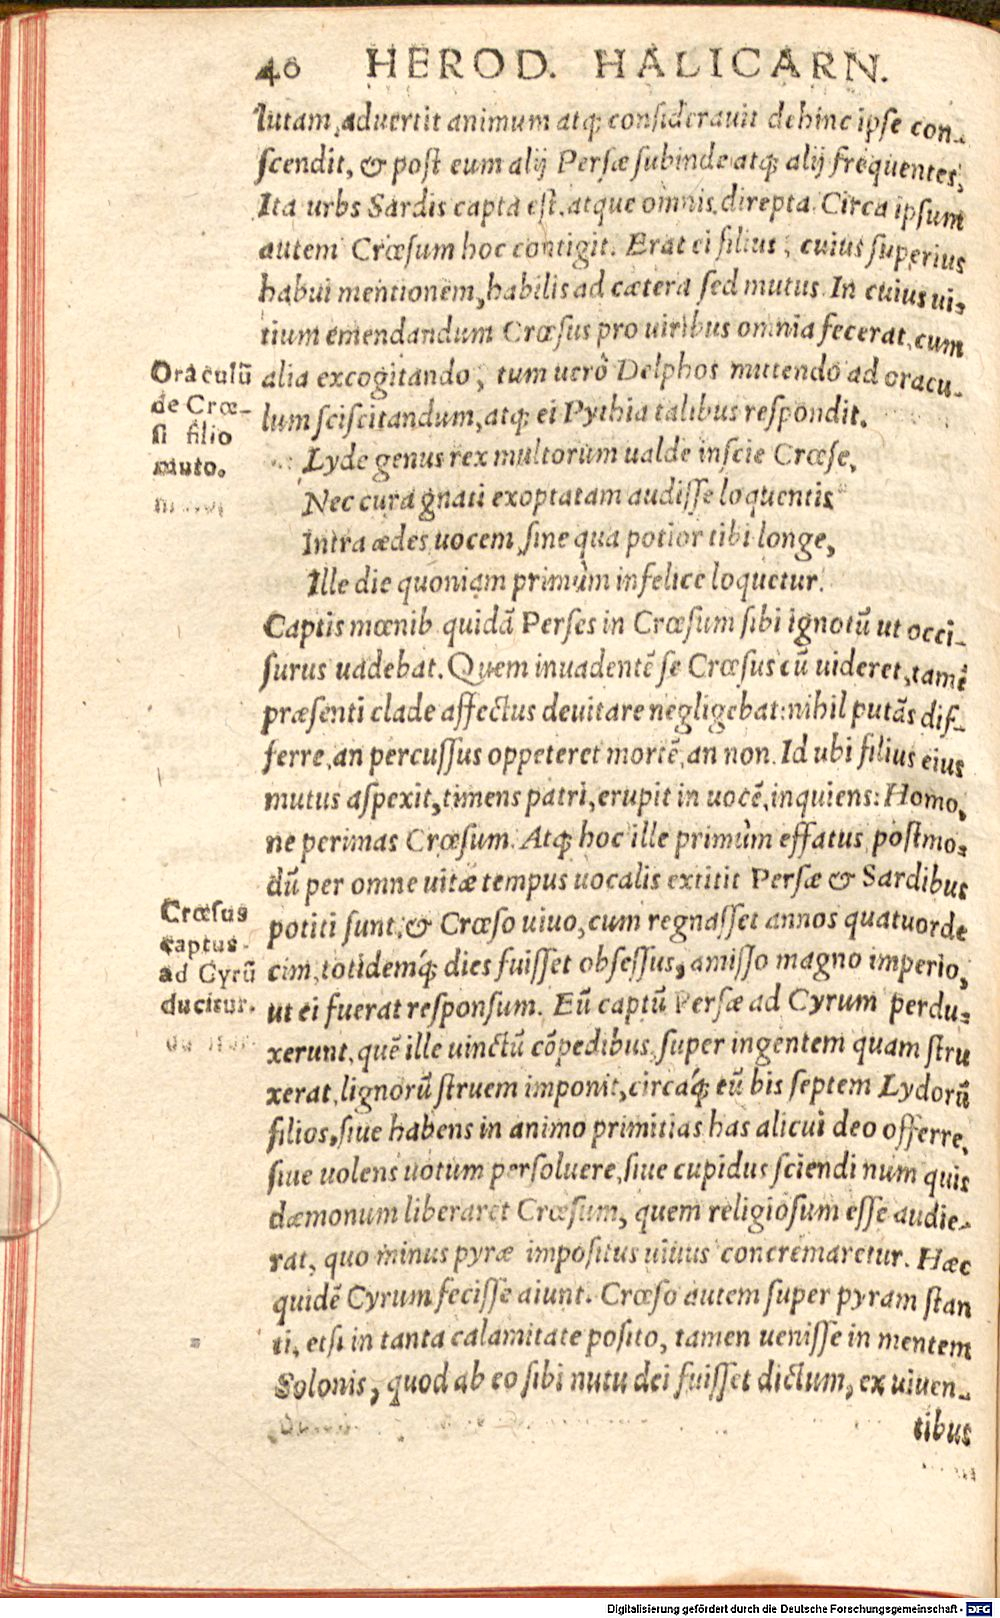 40 HEROD. HALICARN.
lutam, aduertit animum atq; considerauit dehinc ipse con-
scendit, & post eum alij Persæ subinde atq; alij frequentes,
Ita urbs Sardis capta est. atque omnis direpta. Circa ipsum
autem Crœsum hoc contigit. Erat ei filius, cuius superius
habui mentionem, habilis ad cætera sed mutus. In cuius ui-
tium emendandum Crœsus pro uiribus omnia fecerat, cum
alia excogitando, tum uerò Delphos mittendo ad oracu-
lum sciscitandum, atq; ei Pythia talibus respondit.
Lyde genus rex multorum ualde inscie Crœse,
Nec cura gnati exoptatam audisse loquentis
Intra ædes uocem, sine qua potior tibi longe,
Ille die quoniam primùm infelice loquetur.
Captis mœnib. quidã Perses in Crœsum sibi ignotũ ut occi-
surus uadebat. Quem inuadentẽ se Crœsus cũ uideret, tamẽ
præsenti clade affectus deuitare negligebat: nihil putãs dif-
ferre, an percussus oppeteret mortẽ, an non. Id ubi filius eius
mutus aspexit, timens patri, erupit in uocẽ, inquiens: Homo,
ne perimas Crœsum. Atq; hoc ille primùm effatus, postmo-
dũ per omne uitæ tempus uocalis extitit Persæ & Sardibus
potiti sunt, & Crœso uiuo, cum regnasset annos quatuorde
cim, totidemq́; dies fuisset obsessus, amisso magno imperio,
ut ei fuerat responsum. Eũ captũ Persæ ad Cyrum perdu-
xerunt, quẽ ille uinctũ cõpedibus, super ingentem quam stru
xerat, lignorũ struem imponit, circaq́; eũ bis septem Lydorũ
filios, siue habens in animo primitias has alicui deo offerre,
siue uolens uotum persoluere, siue cupidus sciendi num quis
dæmonum liberaret Crœsum, quem religiosum esse audie-
rat, quo minus pyræ impositus uiuus concremaretur. Hæc
quidẽ Cyrum fecisse aiunt. Crœso autem super pyram stan
ti, etsi in tanta calamitate posito, tamen uenisse in mentem
Solonis, quod ab eo sibi nutu dei fuisset dictum, ex uiuen-
tibus
Oraculũ
de Crœ-
si filio
muto.
Crœsus
captus
ad Cyrũ
ducitur.
Digitalisierung gefördert durch die Deutsche Forschungsgemeinschaft - DFG